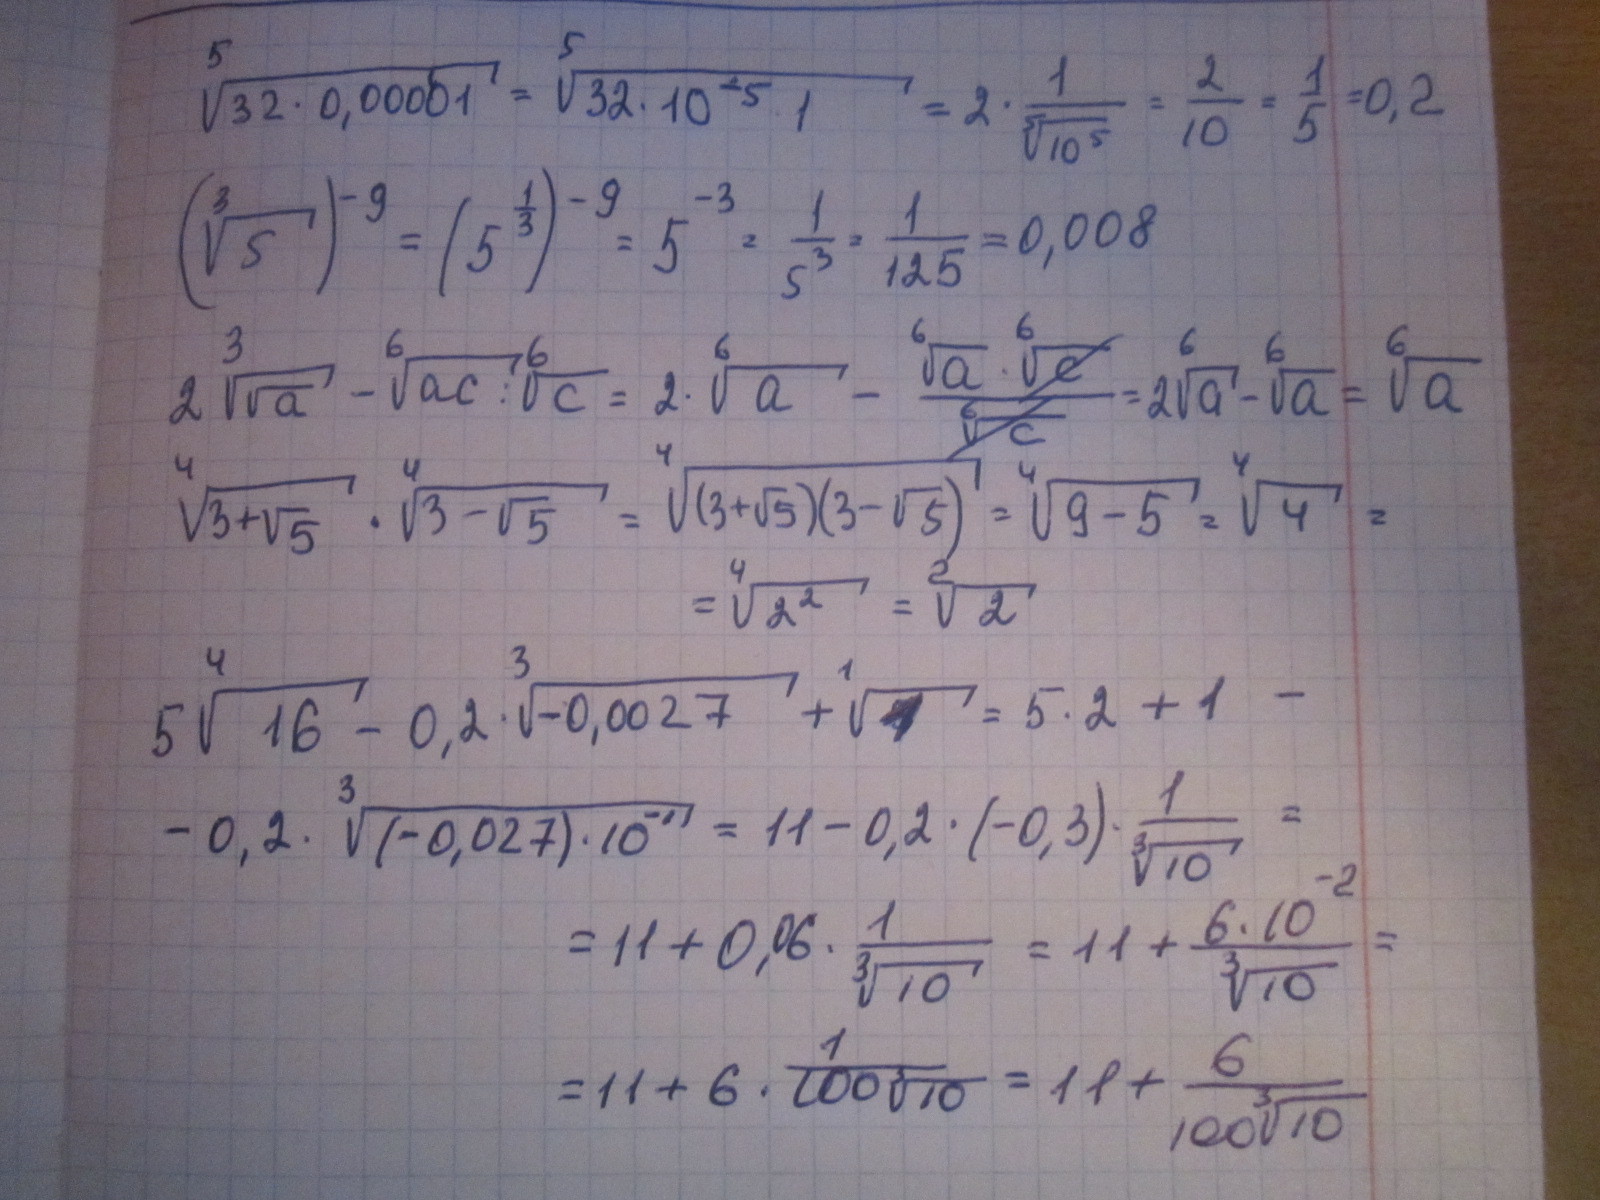 ⁵√(32·0,00001) = ⁵√(32·10⁻⁵·1) = 2·1/⁵√(10⁵) = 2/10 = 1/5 = 0,2
(³√5)⁻⁹ = (5^(1/3))⁻⁹ = 5⁻³ = 1/5³ = 1/125 = 0,008
2 ³√(√a) - ⁶√(ac) : ⁶√c = 2·⁶√a - (⁶√a · ⁶√c)/⁶√c = 2⁶√a - ⁶√a = ⁶√a
⁴√(3+√5) · ⁴√(3-√5) = ⁴√((3+√5)(3-√5)) = ⁴√(9-5) = ⁴√4 =
= ⁴√(2²) = ²√2
5 ⁴√16 - 0,2·³√(-0,0027) + ¹√1 = 5·2 + 1 -
- 0,2·³√((-0,027)·10⁻¹) = 11 - 0,2·(-0,3)·1/³√10 =
= 11 + 0,06·1/³√10 = 11 + (6·10⁻²)/³√10 =
= 11 + 6·1/(100√10) = 11 + 6/(100³√10)